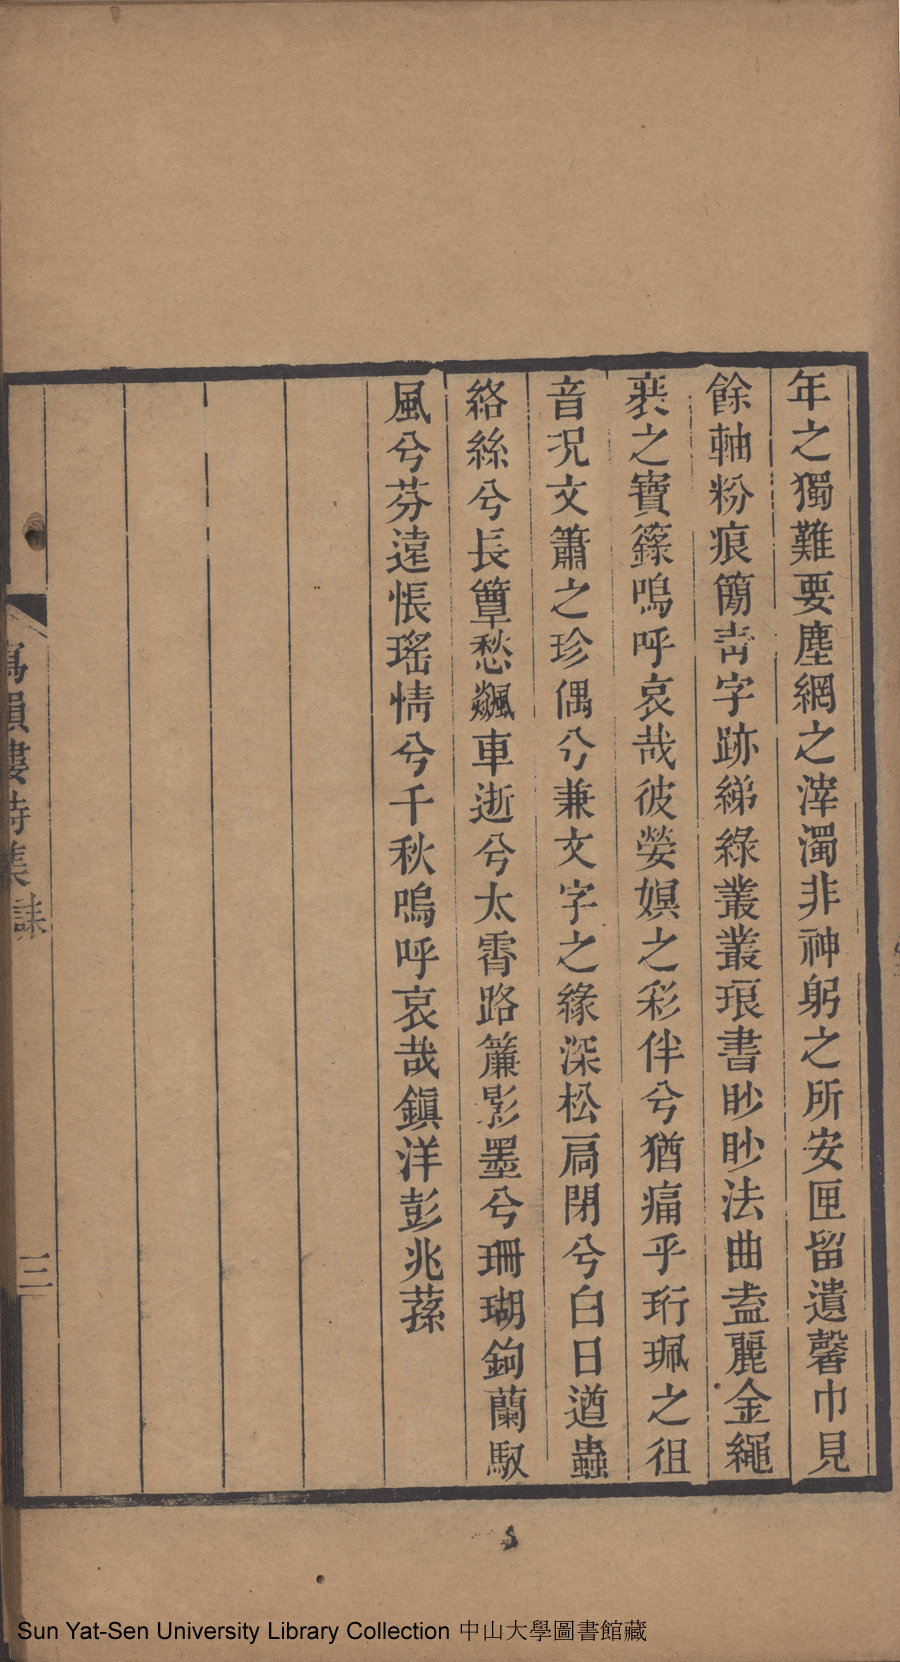 年之獨難要塵網之滓濁非神躬之所安匣留遺馨巾見
餘軸粉痕簡靑字跡綈綠叢叢琅書眇眇法曲盍麗金繩
裝之寶籙嗚呼哀哉彼嫈嫇之彩伴兮猶痛乎珩珮之徂
音况文簫之珍偶兮兼文字之緣深松扃閉兮白日遒蟲
絡絲兮長簟愁飈車逝兮太霄路簾影墨兮珊瑚鉤蘭馭
風兮芬遠悵瑤情兮千秋嗚呼哀哉鎭洋彭兆蓀
寫韻樓詩集 誄
三
Sun Yat-Sen University Library Collection 中山大學圖書館藏